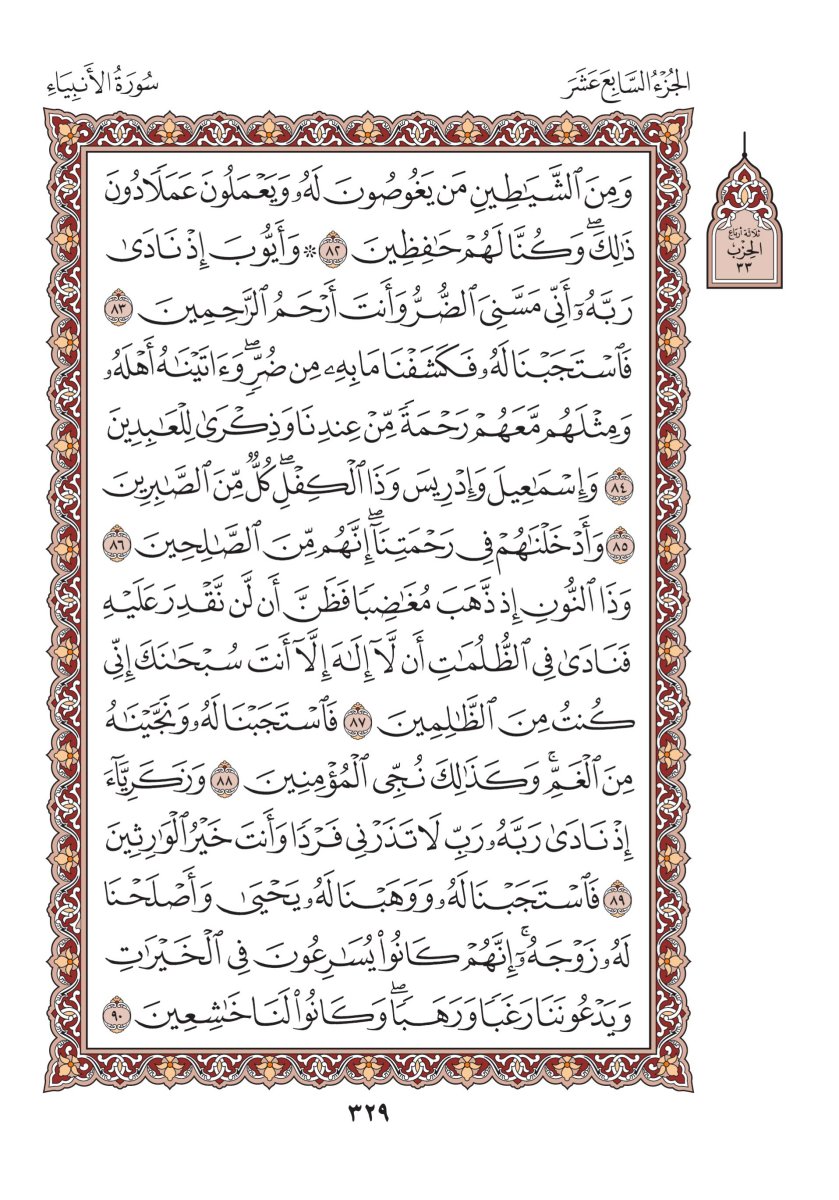 الجُزْءُ السَّابِعَ عَشَرَ
سُورَةُ الأَنبِيَاءِ
ثلاثة أرباع
الحِزْبِ
٣٣
وَمِنَ ٱلشَّيَٰطِينِ مَن يَغُوصُونَ لَهُۥ وَيَعۡمَلُونَ عَمَلٗا دُونَ
ذَٰلِكَۖ وَكُنَّا لَهُمۡ حَٰفِظِينَ ٨٢ ۞ وَأَيُّوبَ إِذۡ نَادَىٰ
رَبَّهُۥٓ أَنِّي مَسَّنِيَ ٱلضُّرُّ وَأَنتَ أَرۡحَمُ ٱلرَّٰحِمِينَ ٨٣
فَٱسۡتَجَبۡنَا لَهُۥ فَكَشَفۡنَا مَا بِهِۦ مِن ضُرّٖۖ وَءَاتَيۡنَٰهُ أَهۡلَهُۥ
وَمِثۡلَهُم مَّعَهُمۡ رَحۡمَةٗ مِّنۡ عِندِنَا وَذِكۡرَىٰ لِلۡعَٰبِدِينَ
٨٤ وَإِسۡمَٰعِيلَ وَإِدۡرِيسَ وَذَا ٱلۡكِفۡلِۖ كُلّٞ مِّنَ ٱلصَّٰبِرِينَ
٨٥ وَأَدۡخَلۡنَٰهُمۡ فِي رَحۡمَتِنَآۖ إِنَّهُم مِّنَ ٱلصَّٰلِحِينَ ٨٦
وَذَا ٱلنُّونِ إِذ ذَّهَبَ مُغَٰضِبٗا فَظَنَّ أَن لَّن نَّقۡدِرَ عَلَيۡهِ
فَنَادَىٰ فِي ٱلظُّلُمَٰتِ أَن لَّآ إِلَٰهَ إِلَّآ أَنتَ سُبۡحَٰنَكَ إِنِّي
كُنتُ مِنَ ٱلظَّٰلِمِينَ ٨٧ فَٱسۡتَجَبۡنَا لَهُۥ وَنَجَّيۡنَٰهُ
مِنَ ٱلۡغَمِّۚ وَكَذَٰلِكَ نُـۨجِي ٱلۡمُؤۡمِنِينَ ٨٨ وَزَكَرِيَّآءَ
إِذۡ نَادَىٰ رَبَّهُۥ رَبِّ لَا تَذَرۡنِي فَرۡدٗا وَأَنتَ خَيۡرُ ٱلۡوَٰرِثِينَ
٨٩ فَٱسۡتَجَبۡنَا لَهُۥ وَوَهَبۡنَا لَهُۥ يَحۡيَىٰ وَأَصۡلَحۡنَا
لَهُۥ زَوۡجَهُۥٓۚ إِنَّهُمۡ كَانُواْ يُسَٰرِعُونَ فِي ٱلۡخَيۡرَٰتِ
وَيَدۡعُونَنَا رَغَبٗا وَرَهَبٗاۖ وَكَانُواْ لَنَا خَٰشِعِينَ ٩٠
٣٢٩